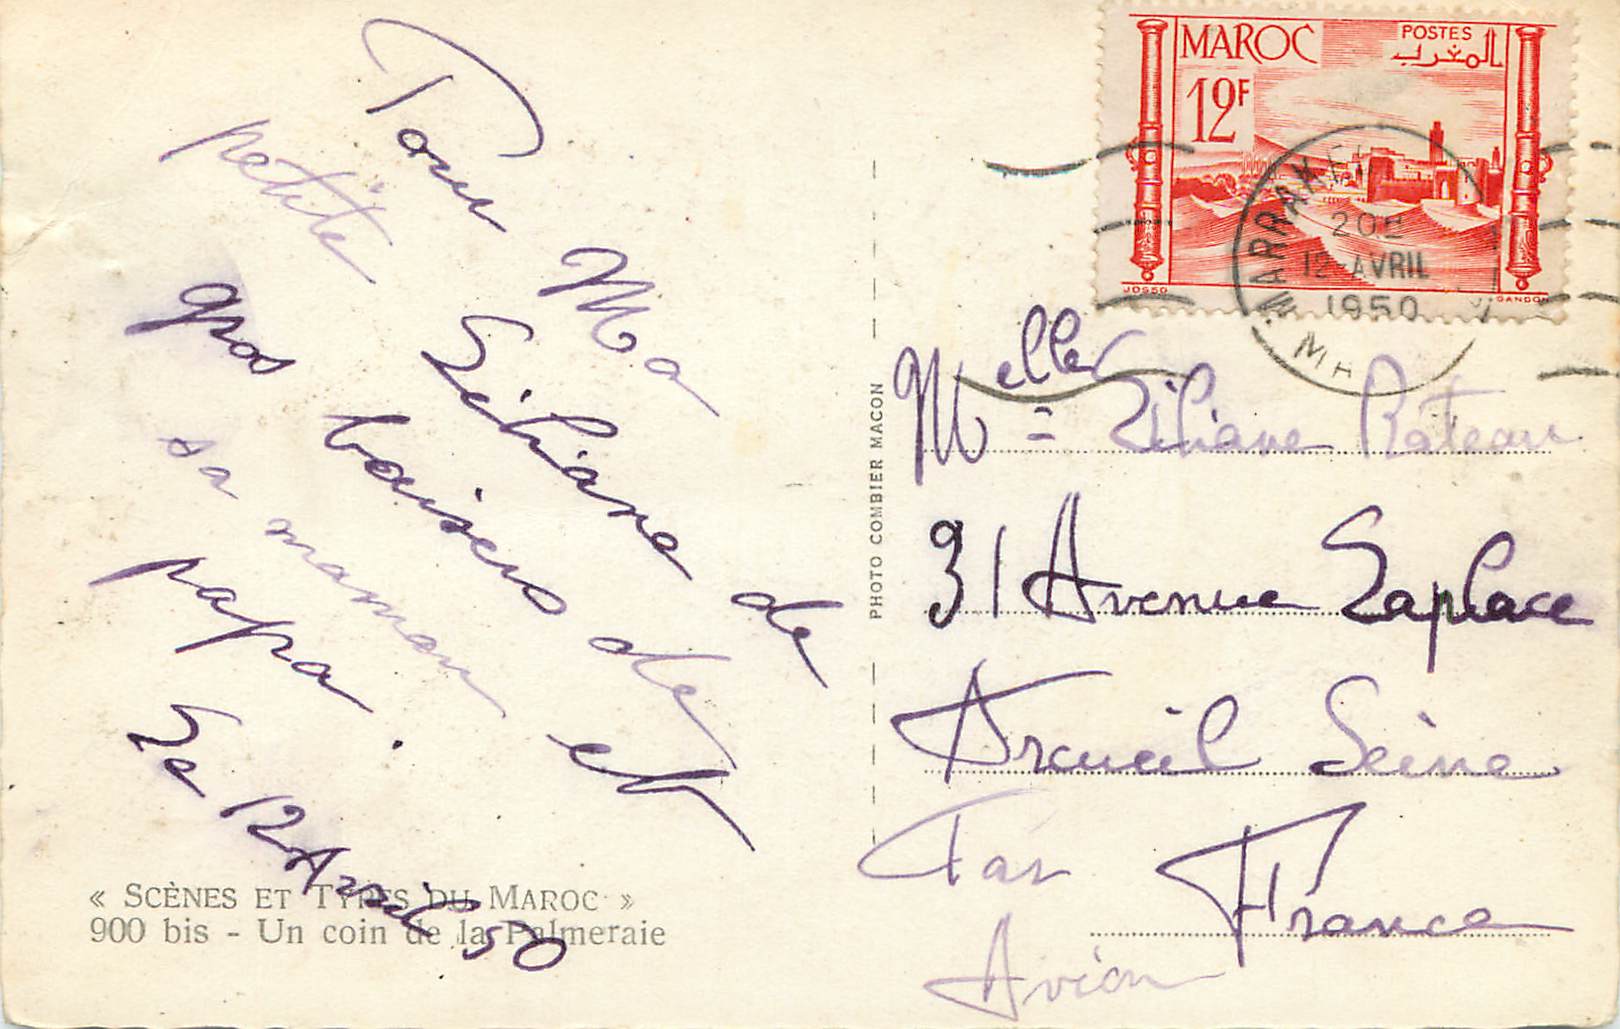 Pour Ma
petite Liliane de
gros baisers de
sa maman et
papa.
Le 12 Avril 50
« SCÈNES ET TYPES DU MAROC »
900 bis - Un coin de la Palmeraie
PHOTO COMBIER MACON
MAROC
POSTES
المغرب
12F
JOSSO
GANDON
MARRAKE
20
12 AVRIL
1950
MA
Melle = Liliane Rateau
31 Avenue Laplace
Arcueil Seine
Par
Avion
France